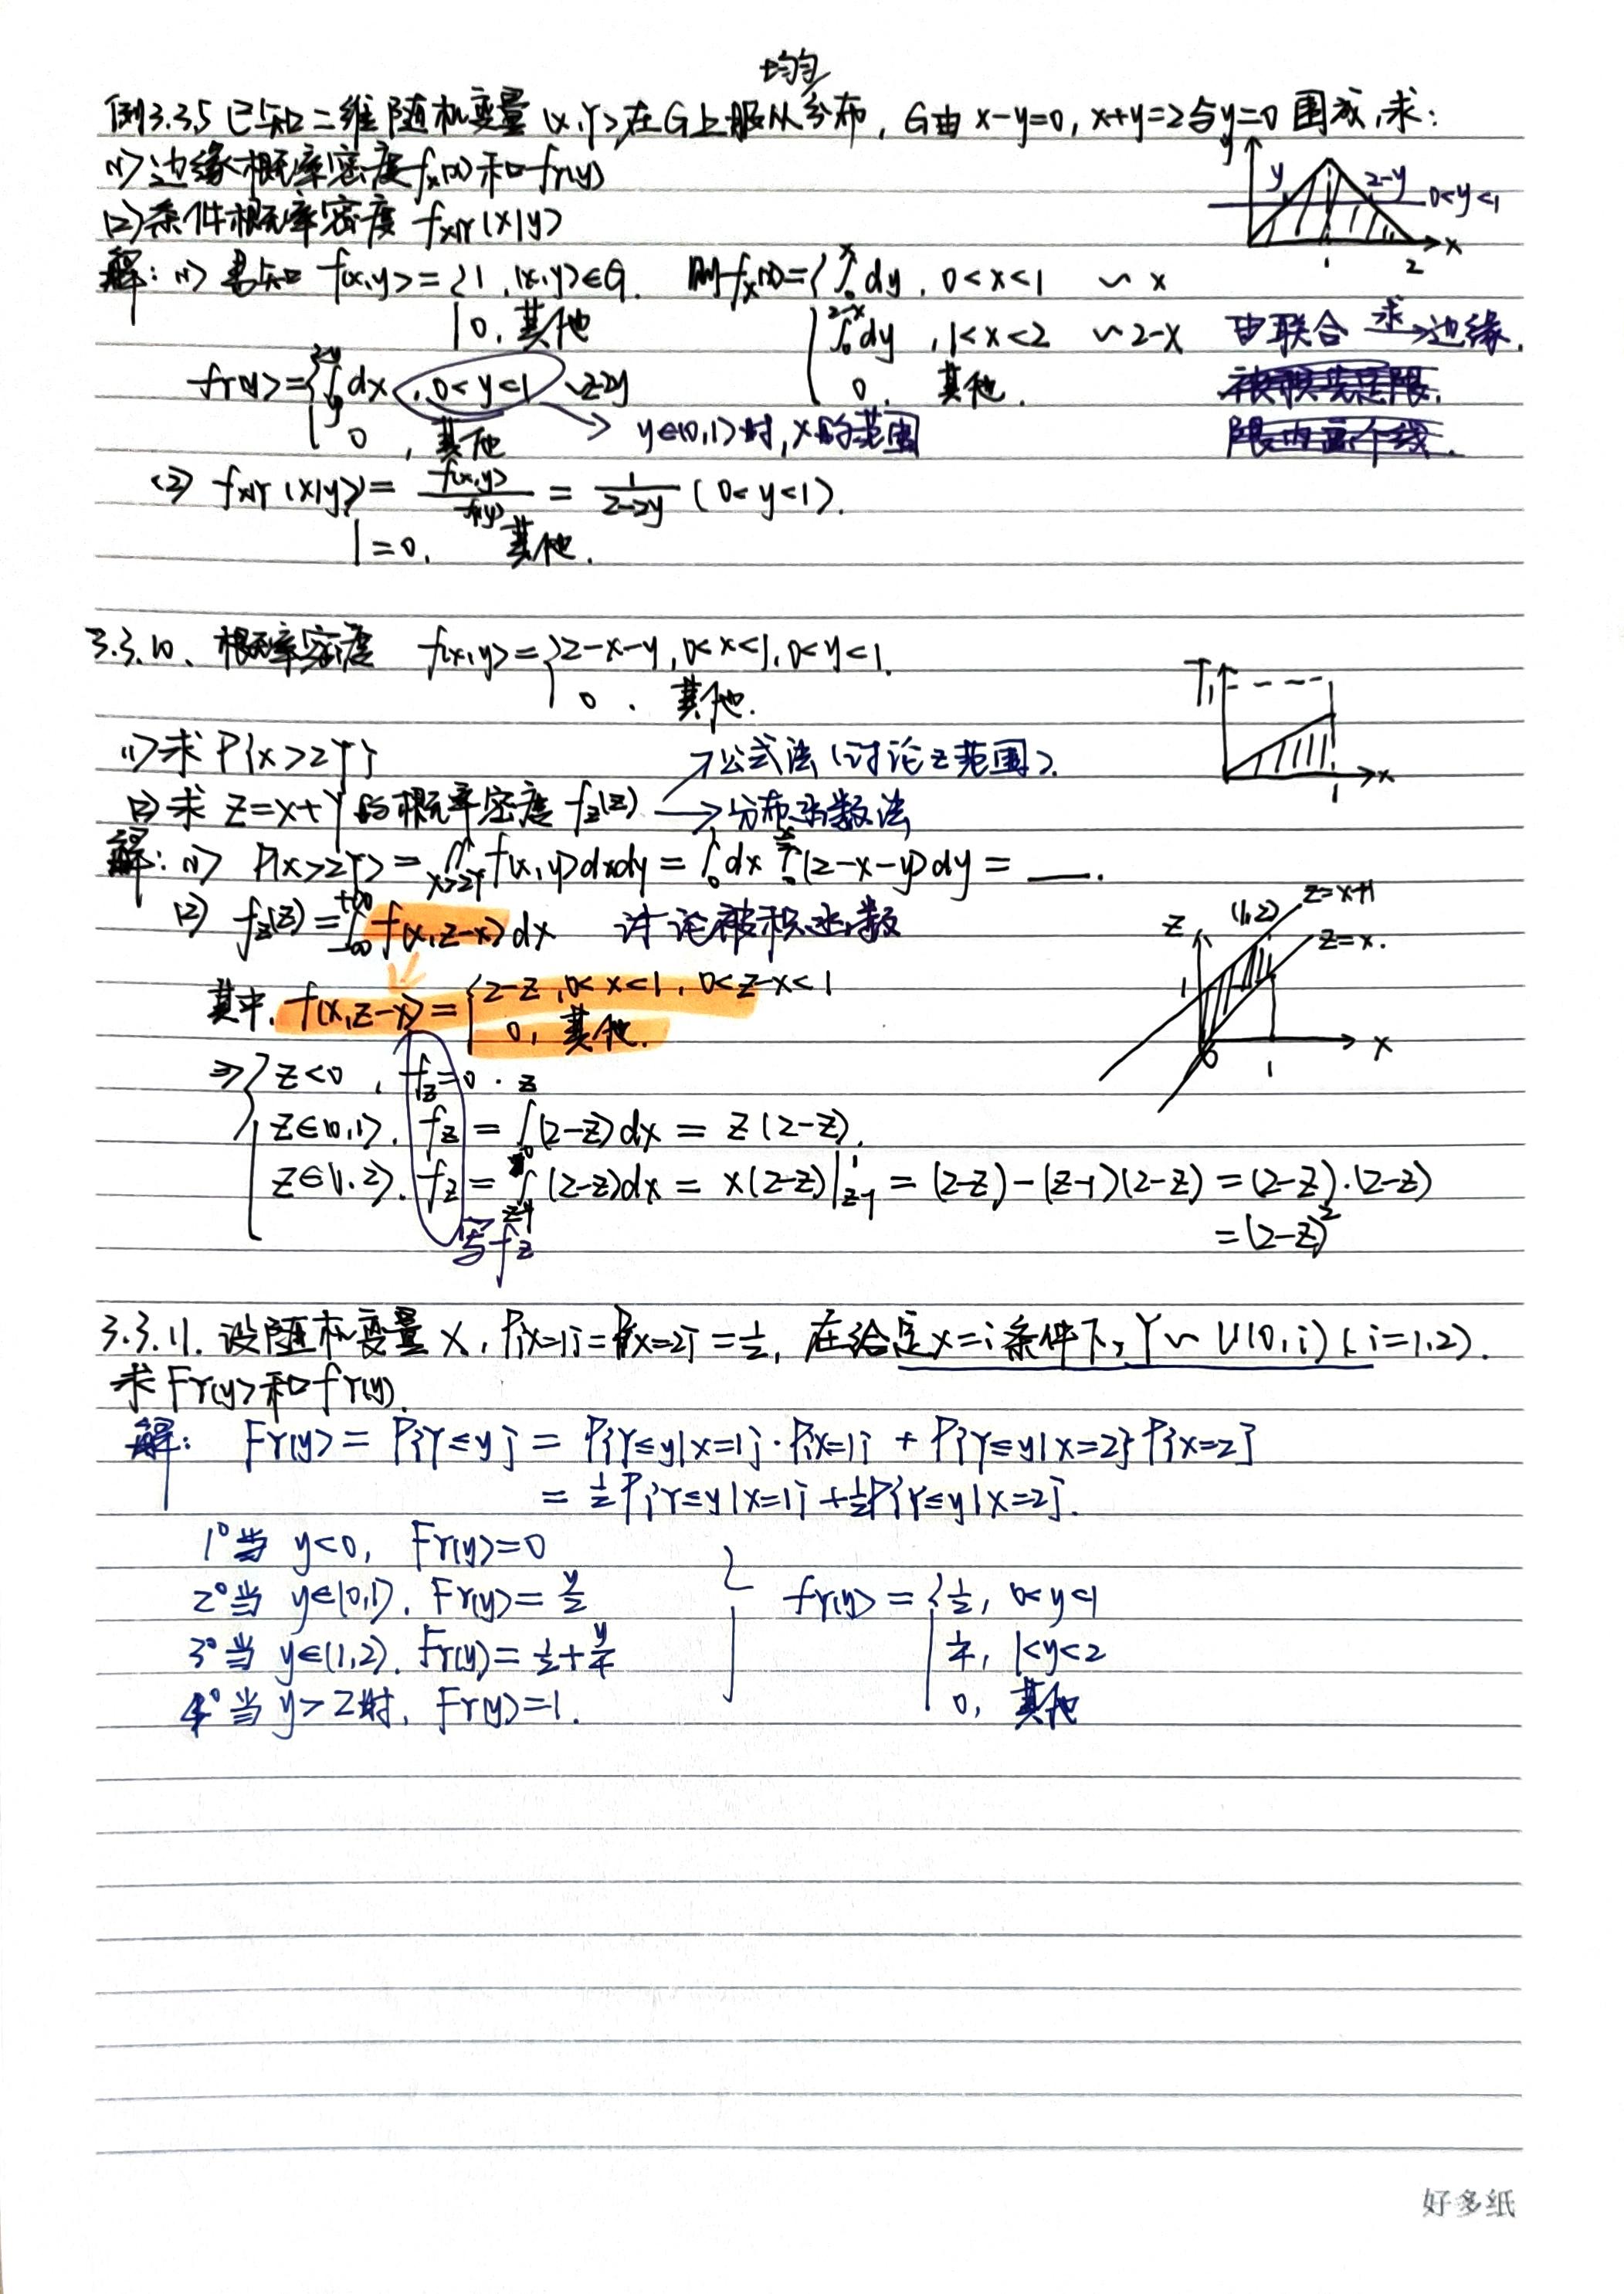 均匀
例3.3.5 已知二维随机变量(X,Y)在G上服从分布，G由x-y=0, x+y=2与y=0围成，求：
(1)边缘概率密度fx(x)和fY(y)
(2)条件概率密度 fX|Y(x|y)
y
y 2-y 0<y<1
1 2 x
解：(1) 易知 f(x,y)={1, (x,y)∈G. 则fx(x)={∫₀ˣdy, 0<x<1 ~ x
0, 其他 ∫₀²⁻ˣdy, 1<x<2 ~ 2-x 由联合 求→边缘.
fY(y)={∫dx, 0<y<1 ~2-2y 0, 其他.
0, 其他 → y∈(0,1)时, x的范围
(2) fX|Y(x|y)= f(x,y)/f(y) = 1/(2-2y) (0<y<1).
=0, 其他.
3.3.10. 概率密度 f(x,y)={2-x-y, 0<x<1, 0<y<1.
0, 其他.
(1)求P{X>2Y} →公式法(讨论z范围).
(2)求 Z=X+Y的概率密度 fz(z) →分布函数法
1 1 x
解：(1) P(X>2Y)=∬x>2y f(x,y)dxdy=∫₀¹dx∫₀(2-x-y)dy= ___.
(2) fz(z)=∫₋∞⁺∞ f(x,z-x)dx 讨论被积函数
Z (1,2) z=x+1
z=x.
1 0 1 x
其中, f(x,z-x)={2-z, 0<x<1, 0<z-x<1
0, 其他.
⇒{z<0, fz=0.
z∈(0,1). fz=∫₀ᶻ(2-z)dx=z(2-z).
z∈(1,2). fz=∫(2-z)dx=x(2-z)|¹z-1=(2-z)-(z-1)(2-z)=(2-z)·(2-z)
=(2-z)²
写fz
3.3.11. 设随机变量X, P{X=1}=P{X=2}=1/2, 在给定X=i条件下, Y~U(0,i) (i=1,2).
求FY(y)和fY(y).
解： FY(y)=P{Y≤y}=P{Y≤y|X=1}·P{X=1}+P{Y≤y|X=2}P{X=2}
=1/2P{Y≤y|X=1}+1/2P{Y≤y|X=2}.
1°当 y<0, FY(y)=0
2°当 y∈(0,1). FY(y)=y/2 fY(y)={1/2, 0<y<1
3°当 y∈(1,2). FY(y)=1/2+y/4 1/4, 1<y<2
4°当 y>2时, FY(y)=1. 0, 其他
好多纸